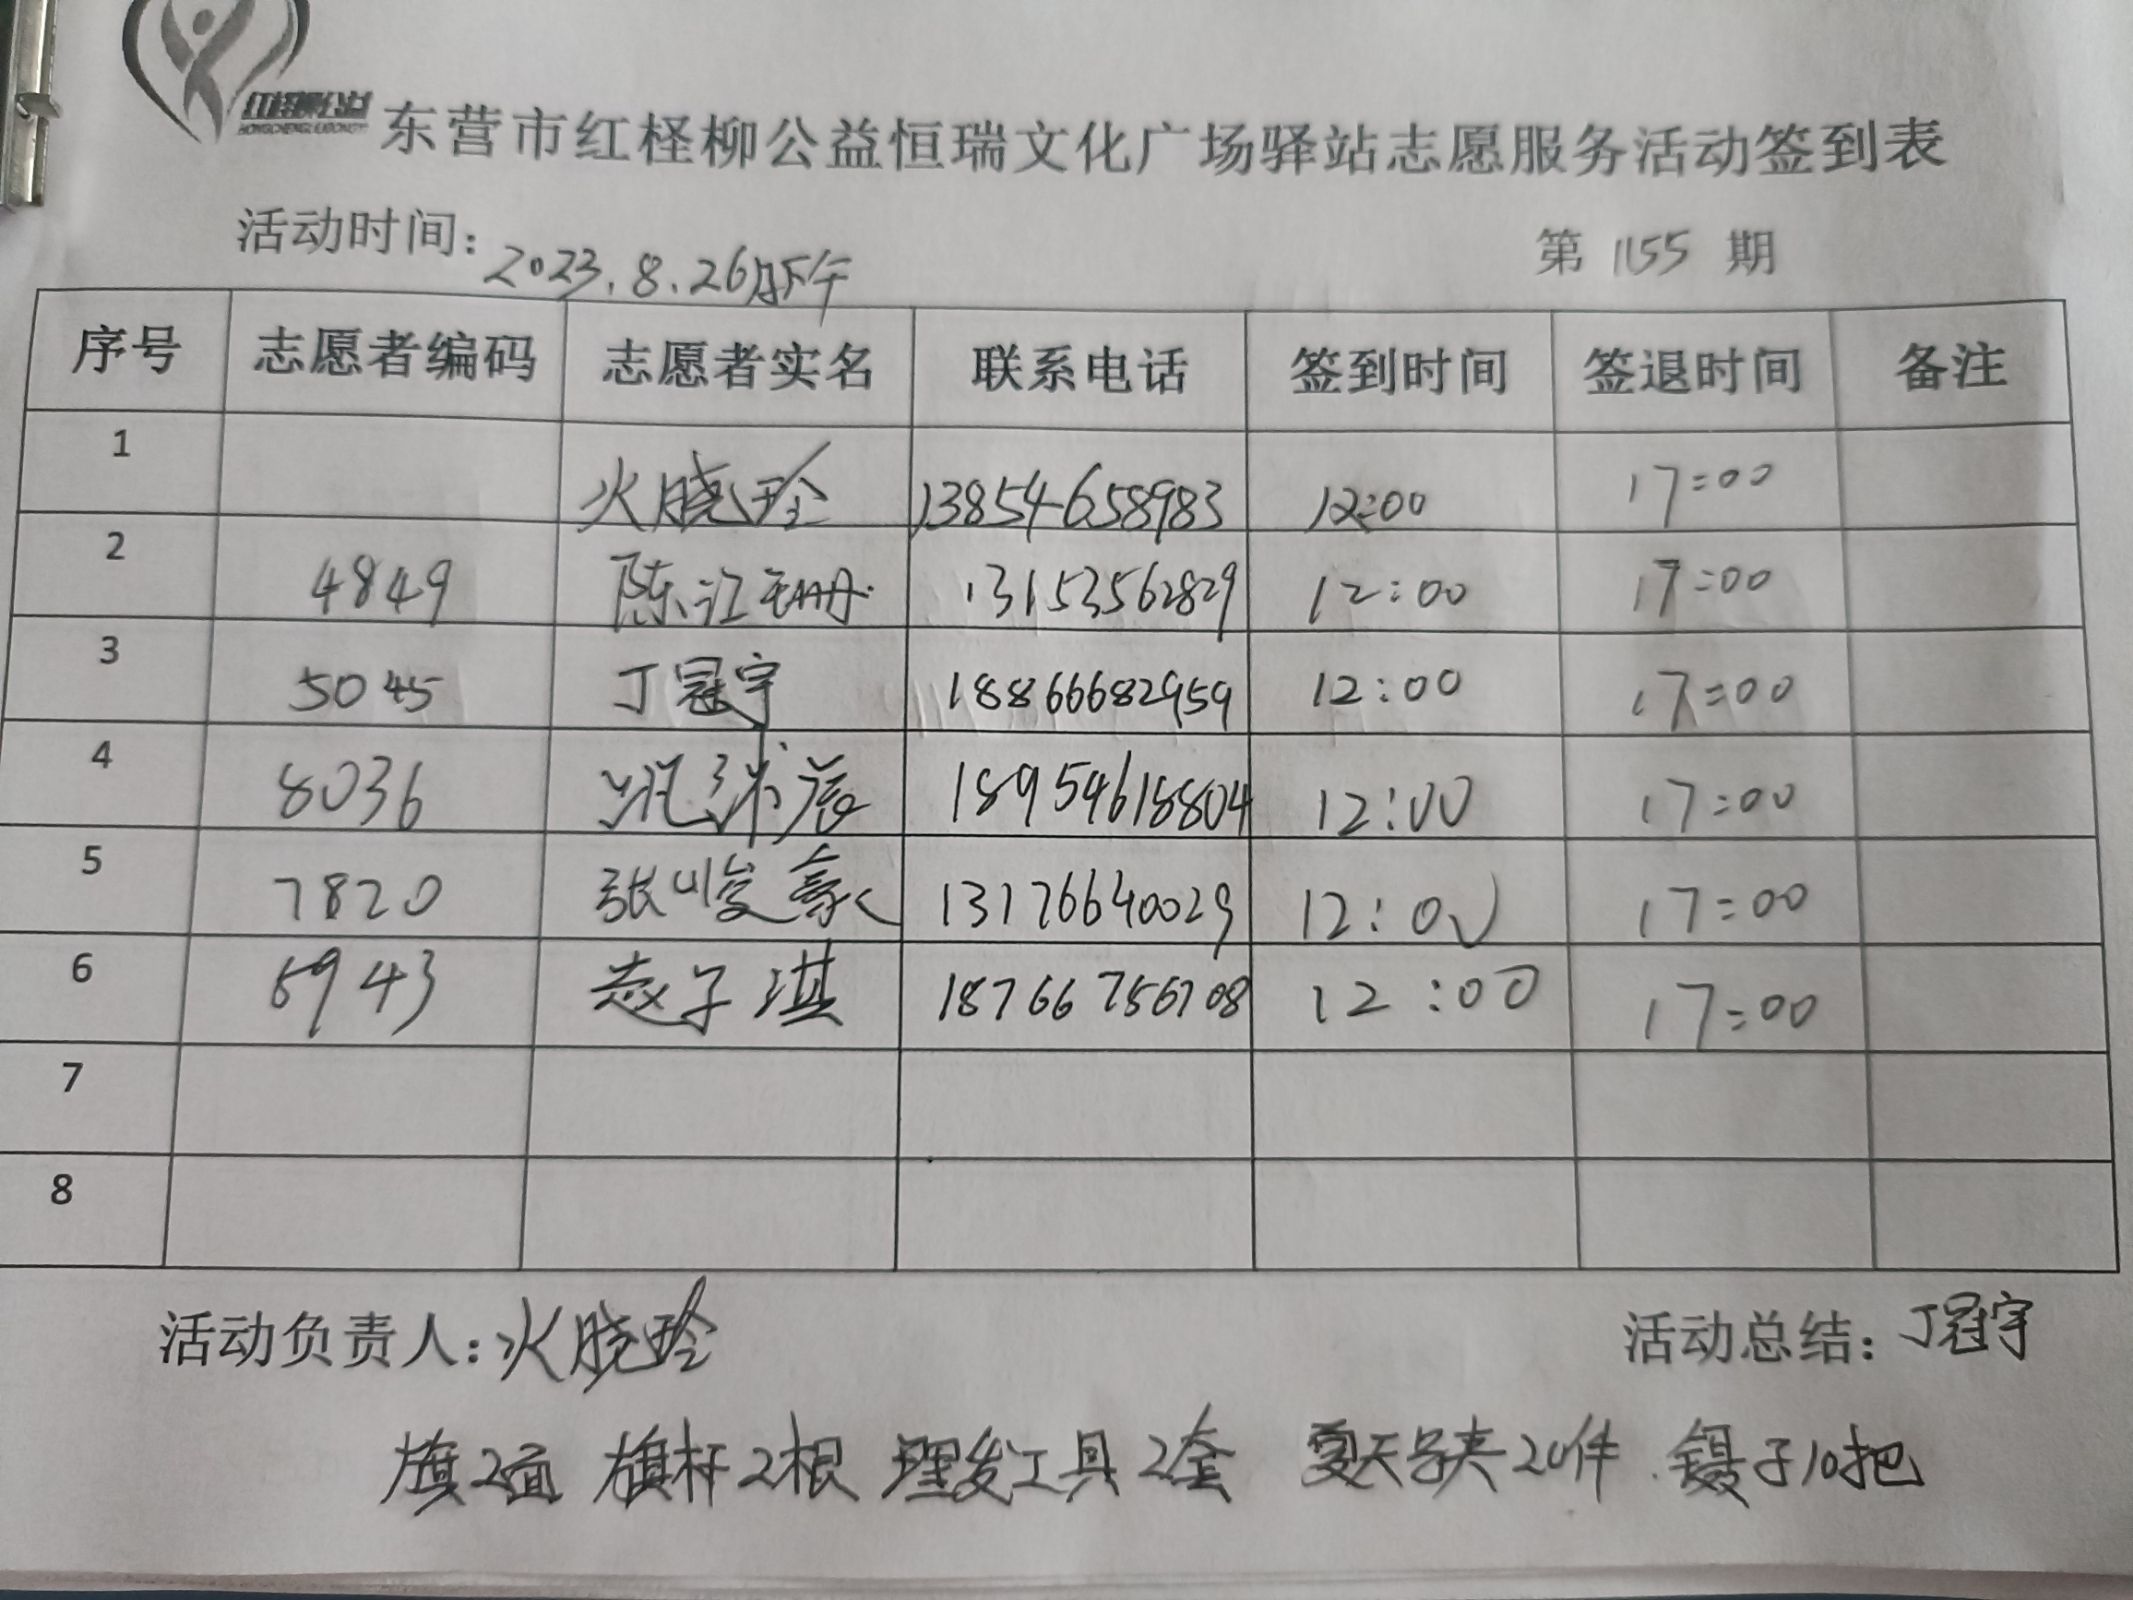 红柽柳公益
东营市红柽柳公益恒瑞文化广场驿站志愿服务活动签到表
活动时间: 2023.8.26下午 第 1155 期
序号 志愿者编码 志愿者实名 联系电话 签到时间 签退时间 备注
1 火晓玲 13854658983 12:00 17:00
2 4849 陈江珊 13153562829 12:00 17:00
3 5045 丁冠宇 18866682959 12:00 17:00
4 8036 18954618804 12:00 17:00
5 7820 张峻豪 13176640029 12:00 17:00
6 6943 赵子淇 18766756708 12:00 17:00
7
8
活动负责人: 火晓玲 活动总结: 丁冠宇
旗2面 旗杆2根 理发工具2套 夏天马夹20件 镊子10把